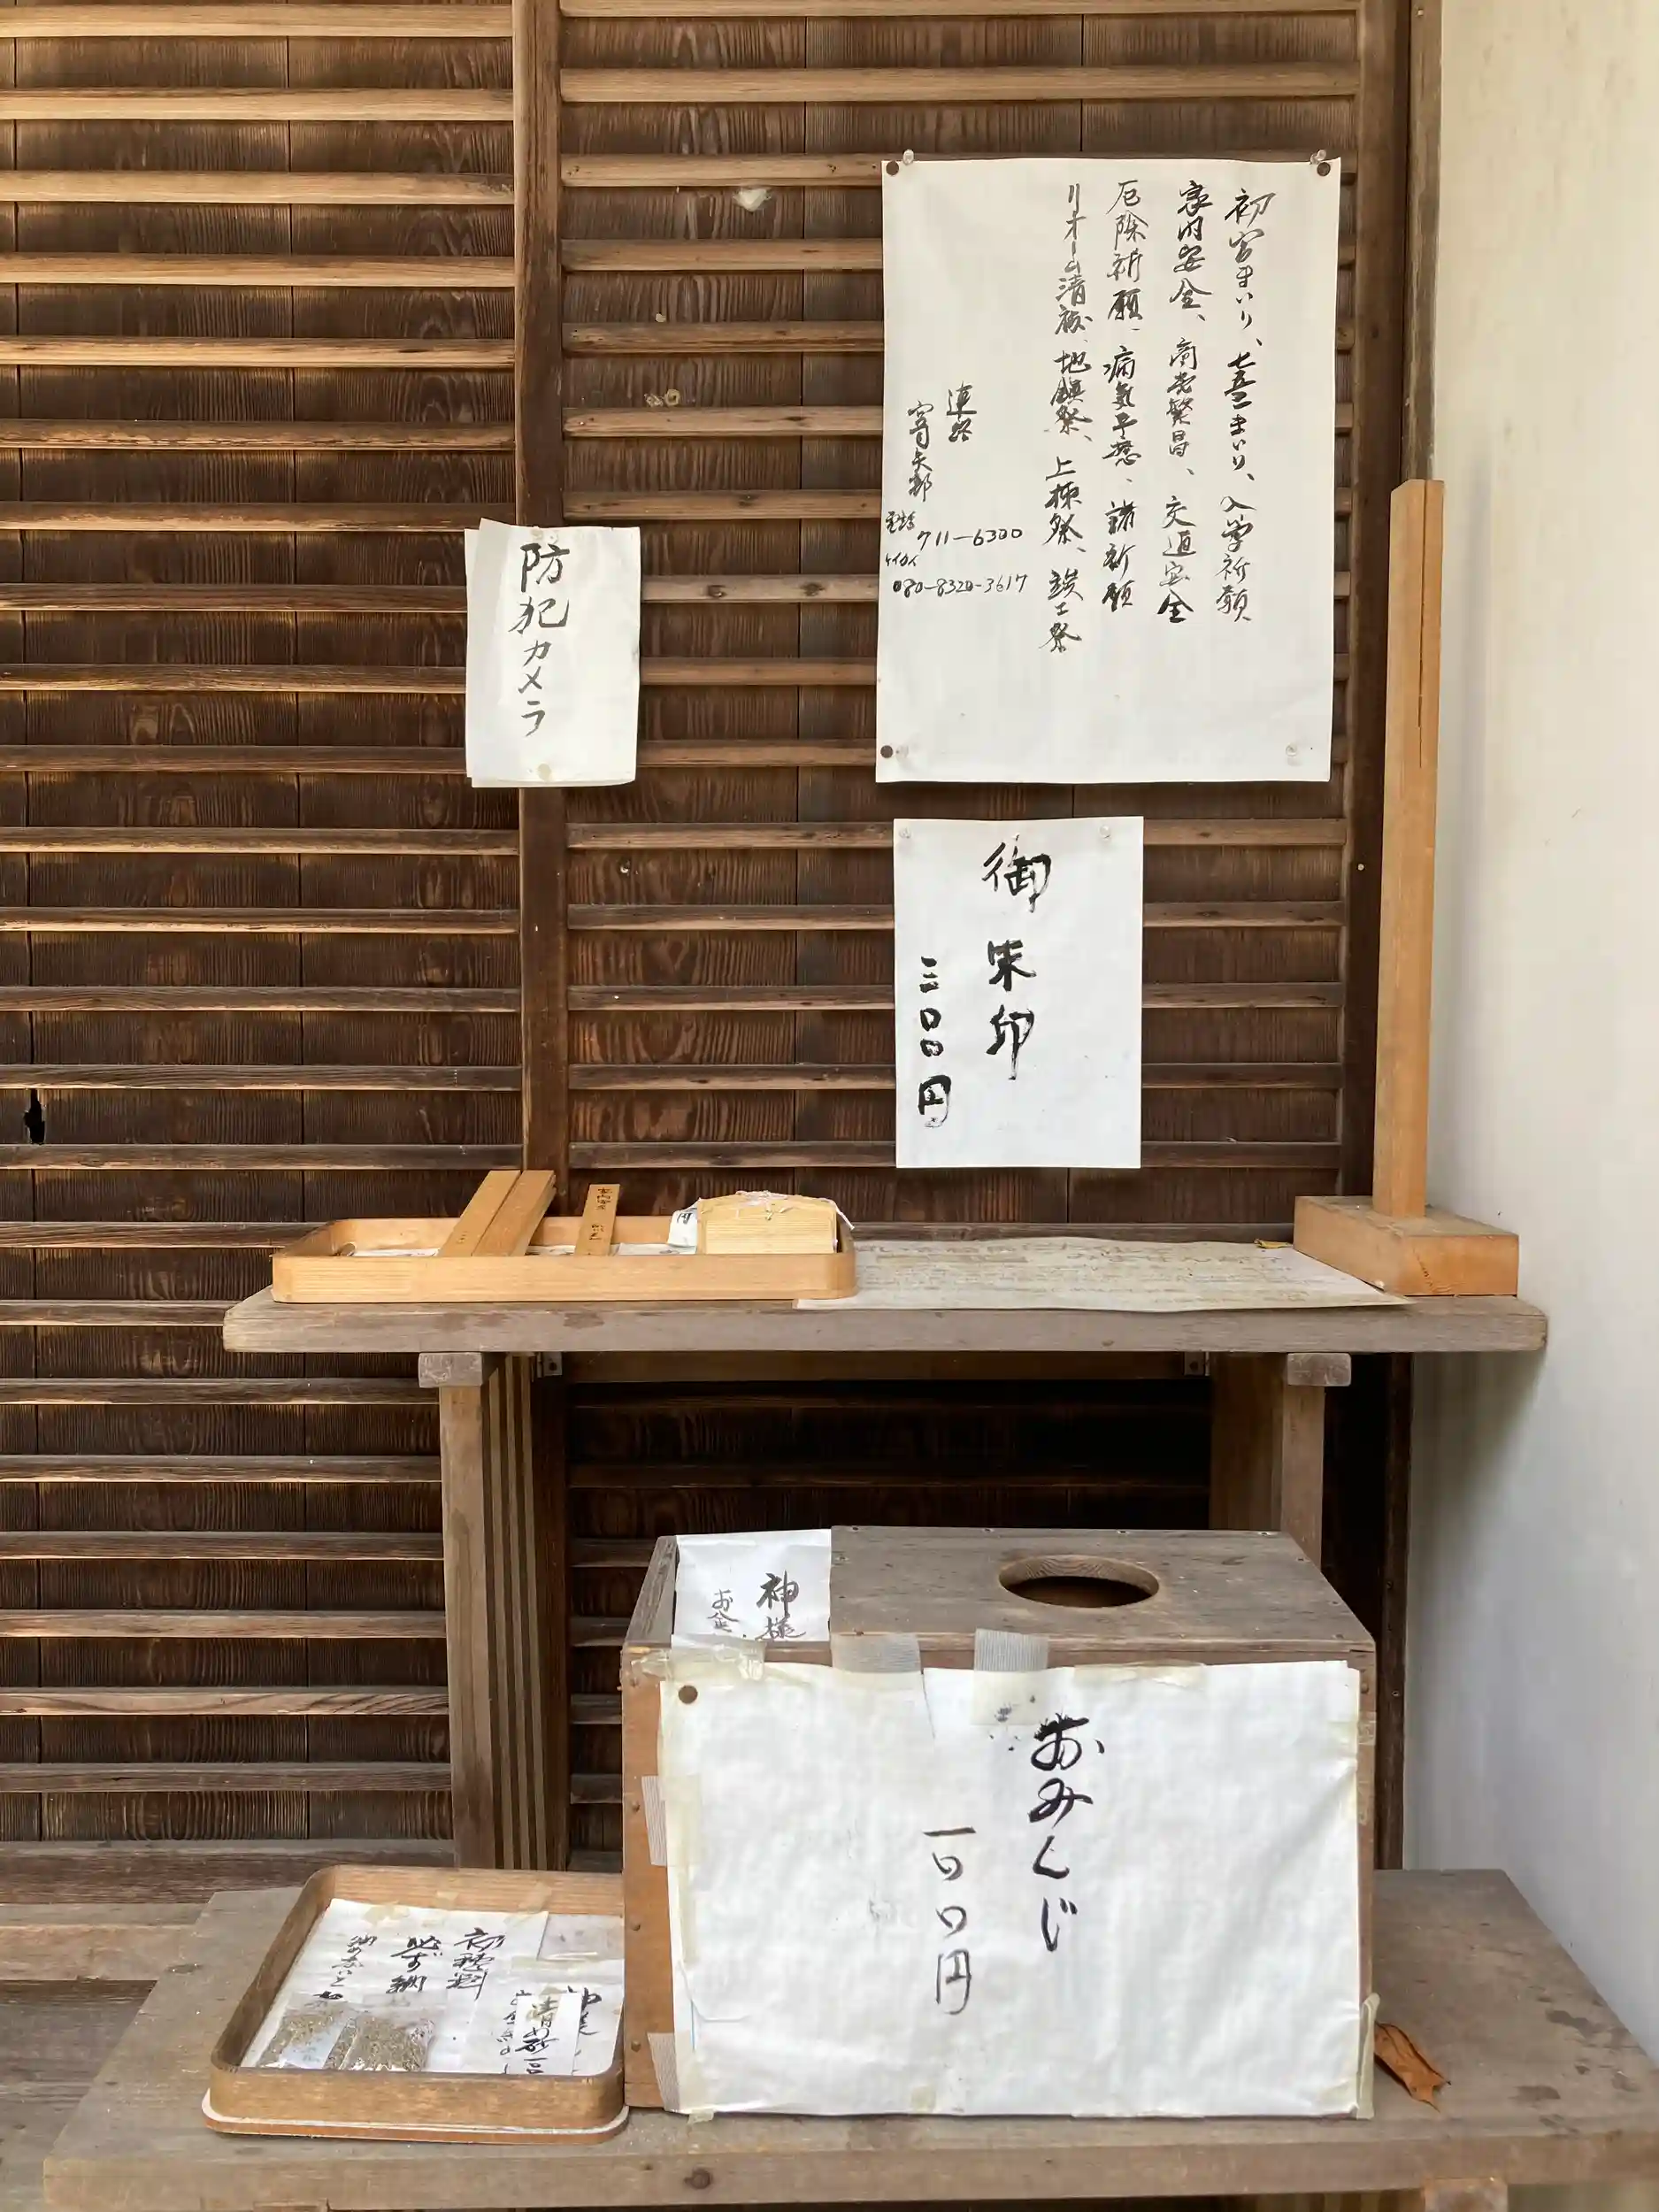 初宮まいり、七五三まいり、入学祈願、
家内安全、商売繁昌、交通安全
厄除祈願、病気平癒、諸祈願
リオーム清祓、地鎮祭、上棟祭、竣工祭
連絡
宮司 矢部
電話 711-6300
ケイタイ 080-8320-3617
防犯カメラ
御朱印
三〇〇円
家内安全
神様
お金
おみくじ
一〇〇円
初穂料
必ず納
納め下さい
清め砂